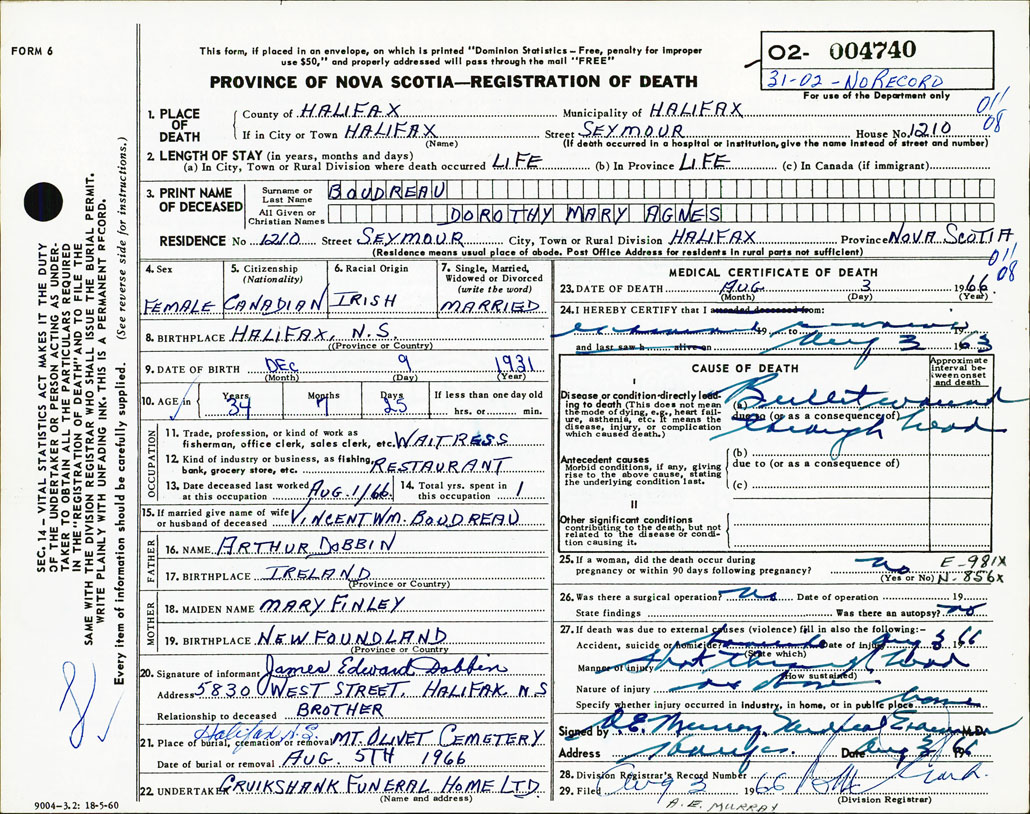 FORM 6
This form, if placed in an envelope, on which is printed "Dominion Statistics – Free, penalty for improper
use $50," and properly addressed will pass through the mail "FREE"
PROVINCE OF NOVA SCOTIA—REGISTRATION OF DEATH
02- 004740
31-02 - NO RECORD
For use of the Department only
011
08
1. PLACE OF DEATH
County of HALIFAX Municipality of HALIFAX
If in City or Town HALIFAX Street SEYMOUR House No. 1210
(Name) (If death occurred in a hospital or institution, give the name instead of street and number)
2. LENGTH OF STAY (in years, months and days)
(a) In City, Town or Rural Division where death occurred LIFE (b) In Province LIFE (c) In Canada (if immigrant)
3. PRINT NAME OF DECEASED
Surname or Last Name BOUDREAU
All Given or Christian Names DOROTHY MARY AGNES
RESIDENCE No 1210 Street SEYMOUR City, Town or Rural Division HALIFAX Province NOVA SCOTIA
(Residence means usual place of abode. Post Office Address for residents in rural parts not sufficient)
011
08
4. Sex FEMALE
5. Citizenship (Nationality) CANADIAN
6. Racial Origin IRISH
7. Single, Married, Widowed or Divorced (write the word) MARRIED
8. BIRTHPLACE HALIFAX, N.S.
(Province or Country)
9. DATE OF BIRTH DEC 9 1931
(Month) (Day) (Year)
10. AGE in Years 34 Months 7 Days 25 If less than one day old
hrs. or min.
OCCUPATION
11. Trade, profession, or kind of work as
fisherman, office clerk, sales clerk, etc. WAITRESS
12. Kind of industry or business, as fishing,
bank, grocery store, etc. RESTAURANT
13. Date deceased last worked at this occupation AUG. 1/66. 14. Total yrs. spent in this occupation 1
15. If married give name of wife
or husband of deceased VINCENT WM. BOUDREAU
FATHER
16. NAME ARTHUR DOBBIN
17. BIRTHPLACE IRELAND
(Province or Country)
MOTHER
18. MAIDEN NAME MARY FINLEY
19. BIRTHPLACE NEWFOUNDLAND
(Province or Country)
20. Signature of informant James Edward Dobbin
Address 5830 WEST STREET, HALIFAX N S
Relationship to deceased BROTHER
21. Place of burial, cremation or removal Halifax N.S. MT. OLIVET CEMETERY
Date of burial or removal AUG. 5TH 1966
22. UNDERTAKER CRUIKSHANK FUNERAL HOME LTD.
(Name and address)
9004-3.2: 18-5-60
MEDICAL CERTIFICATE OF DEATH
23. DATE OF DEATH AUG 3 1966
(Month) (Day) (Year)
24. I HEREBY CERTIFY that I attended deceased from:
19 to
and last saw h alive on Aug 3 1963
CAUSE OF DEATH
Approximate interval between onset and death
I
Disease or condition directly leading to death (This does not mean the mode of dying, e.g., heart failure, asthenia, etc. It means the disease, injury, or complication which caused death.)
(a) Bullet wound
due to (or as a consequence of)
through head
Antecedent causes
Morbid conditions, if any, giving rise to the above cause, stating the underlying condition last.
(b)
due to (or as a consequence of)
(c)
II
Other significant conditions
contributing to the death, but not related to the disease or condition causing it.
25. If a woman, did the death occur during
pregnancy or within 90 days following pregnancy? no
(Yes or No)
E-981X
N-856X
26. Was there a surgical operation? no Date of operation 19
State findings Was there an autopsy? no
27. If death was due to external causes (violence) fill in also the following:–
Accident, suicide or homicide Date of injury Aug 3 66
(State which)
Manner of injury shot through head
(How sustained)
Nature of injury as above
Specify whether injury occurred in industry, in home, or in public place home
Signed by A.E. Murray Medical Examiner M.D.
Address Date Aug 3 66
28. Division Registrar's Record Number
29. Filed Aug 3 1966
(Division Registrar)
A.E. MURRAY
SEC. 14 – VITAL STATISTICS ACT MAKES IT THE DUTY
OF THE UNDERTAKER OR PERSON ACTING AS UNDER-
TAKER TO OBTAIN ALL THE PARTICULARS REQUIRED
IN THE "REGISTRATION OF DEATH" AND TO FILE THE
SAME WITH THE DIVISION REGISTRAR WHO SHALL ISSUE THE BURIAL PERMIT.
WRITE PLAINLY WITH UNFADING INK. THIS IS A PERMANENT RECORD.
Every item of information should be carefully supplied. (See reverse side for instructions.)